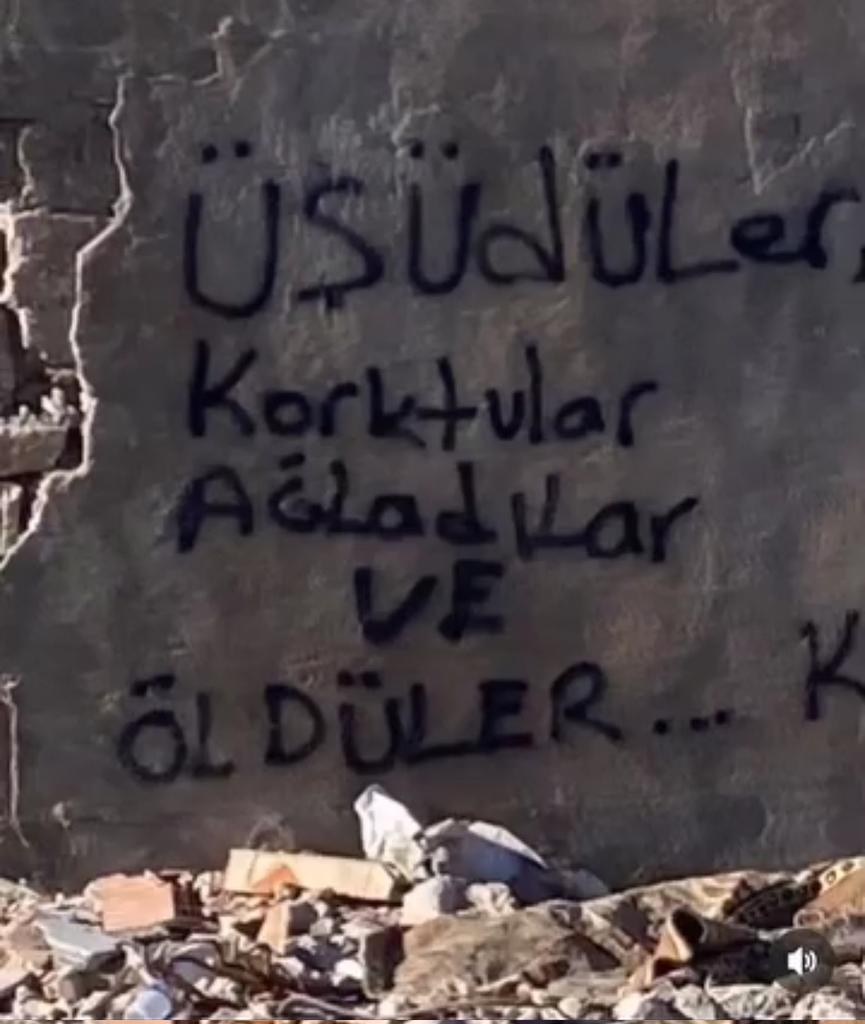 ÜŞÜdÜLer,
Korktular
AĞLadıLar
VE
ÖLDÜLER... K